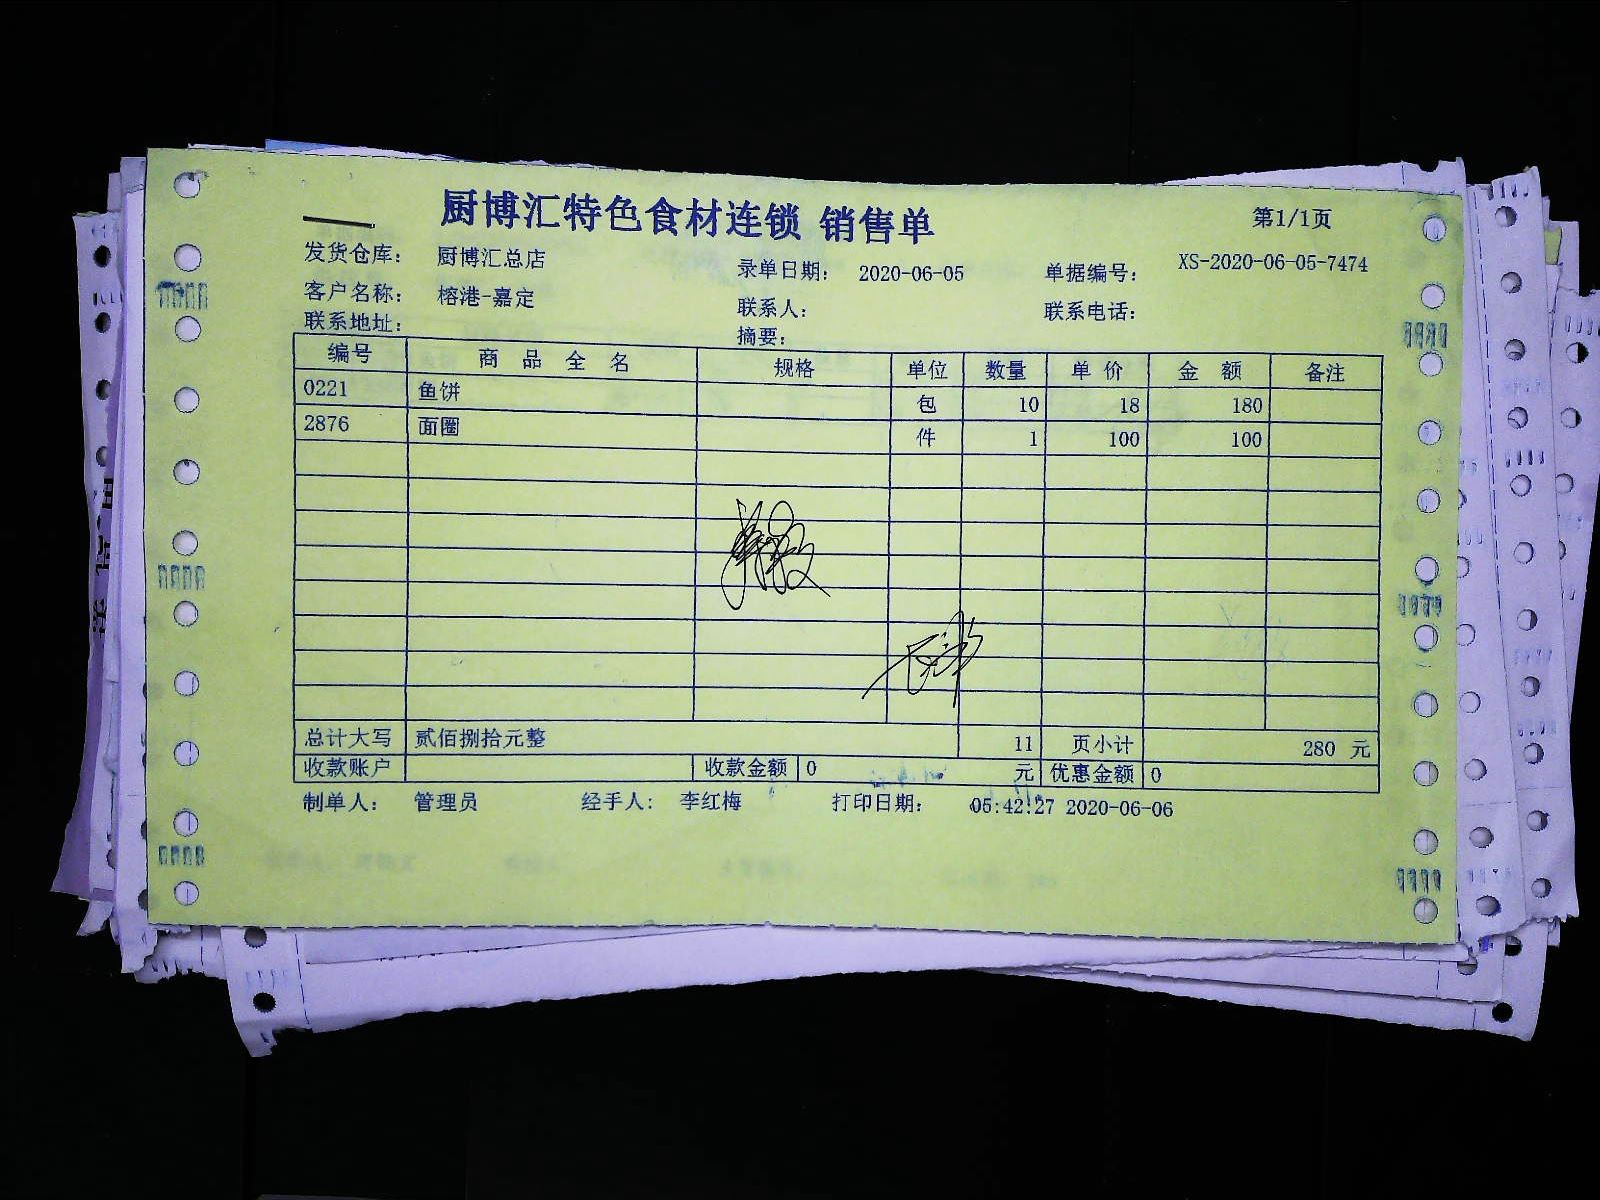 厨博汇特色食材连锁 销售单
第1/1页
发货仓库： 厨博汇总店 录单日期： 2020-06-05 单据编号： XS-2020-06-05-7474
客户名称： 榕港-嘉定 联系人： 联系电话：
联系地址： 摘要：
编号 商品全名 规格 单位 数量 单价 金额 备注
0221 鱼饼 包 10 18 180
2876 面圈 件 1 100 100
总计大写 贰佰捌拾元整 11 页小计 280 元
收款账户 收款金额 0 元 优惠金额 0
制单人： 管理员 经手人： 李红梅 打印日期： 05:42:27 2020-06-06